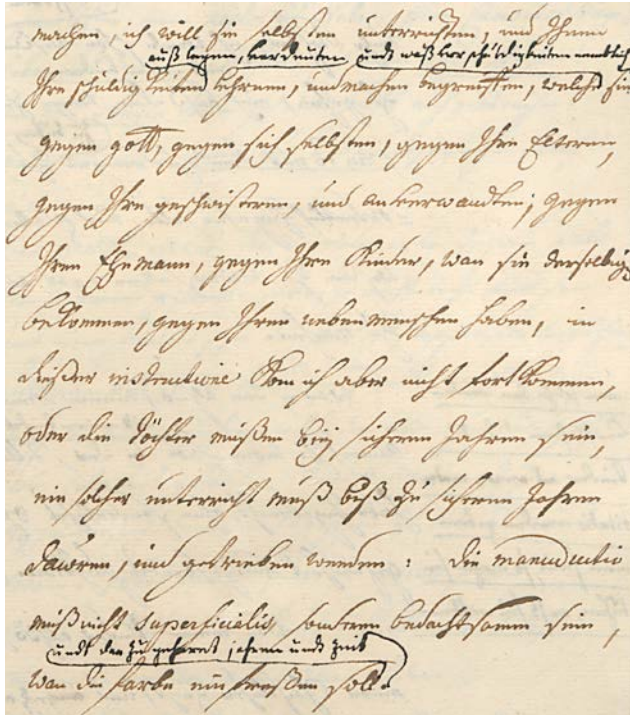 machen, ich will sie selbsten unterrichten, und Ihnen
auß legen, verdeuten, undt waß vor schuldigkeiten nemblich
Ihre schuldigkeiten lehrnen, und machen begreiffen, welche sie
gegen gott, gegen sich selbsten, gegen Ihre Elteren,
gegen Ihre geschwisteren, und anverwandten; gegen
Ihren Ehemann, gegen Ihre Kinder, wan sie derselbige
bekommen, gegen Ihren nebenmenschen haben, in
dießer instructione kan ich aber nicht fortkommen,
oder die töchter müßen bey sicheren Jahren sein,
ein solcher unterricht muß biß zu sicheren Jahren
dauren, und getrieben werden: die manuductio
muß nicht superficialis, sonderen bedachtsamm sein,
undt dar zu gehöret jahren undt zeit
wan die farbe einfreßen soll.